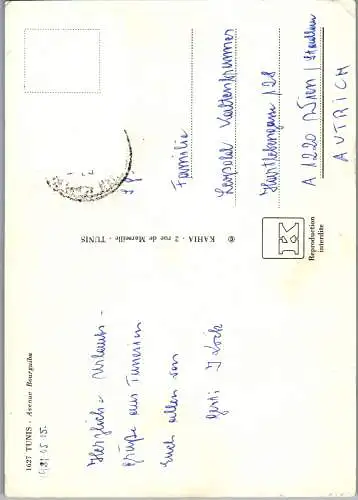 1627 TUNIS - Avenue Bourguiba
Herzliche Urlaubs-
grüße aus Tunesien
Euch allen von
Gerti
© KAHIA - 2 rue de Marseille - TUNIS
Reproduction
interdite
Familie
Leopold
A 1220 Wien /
AUTRICH